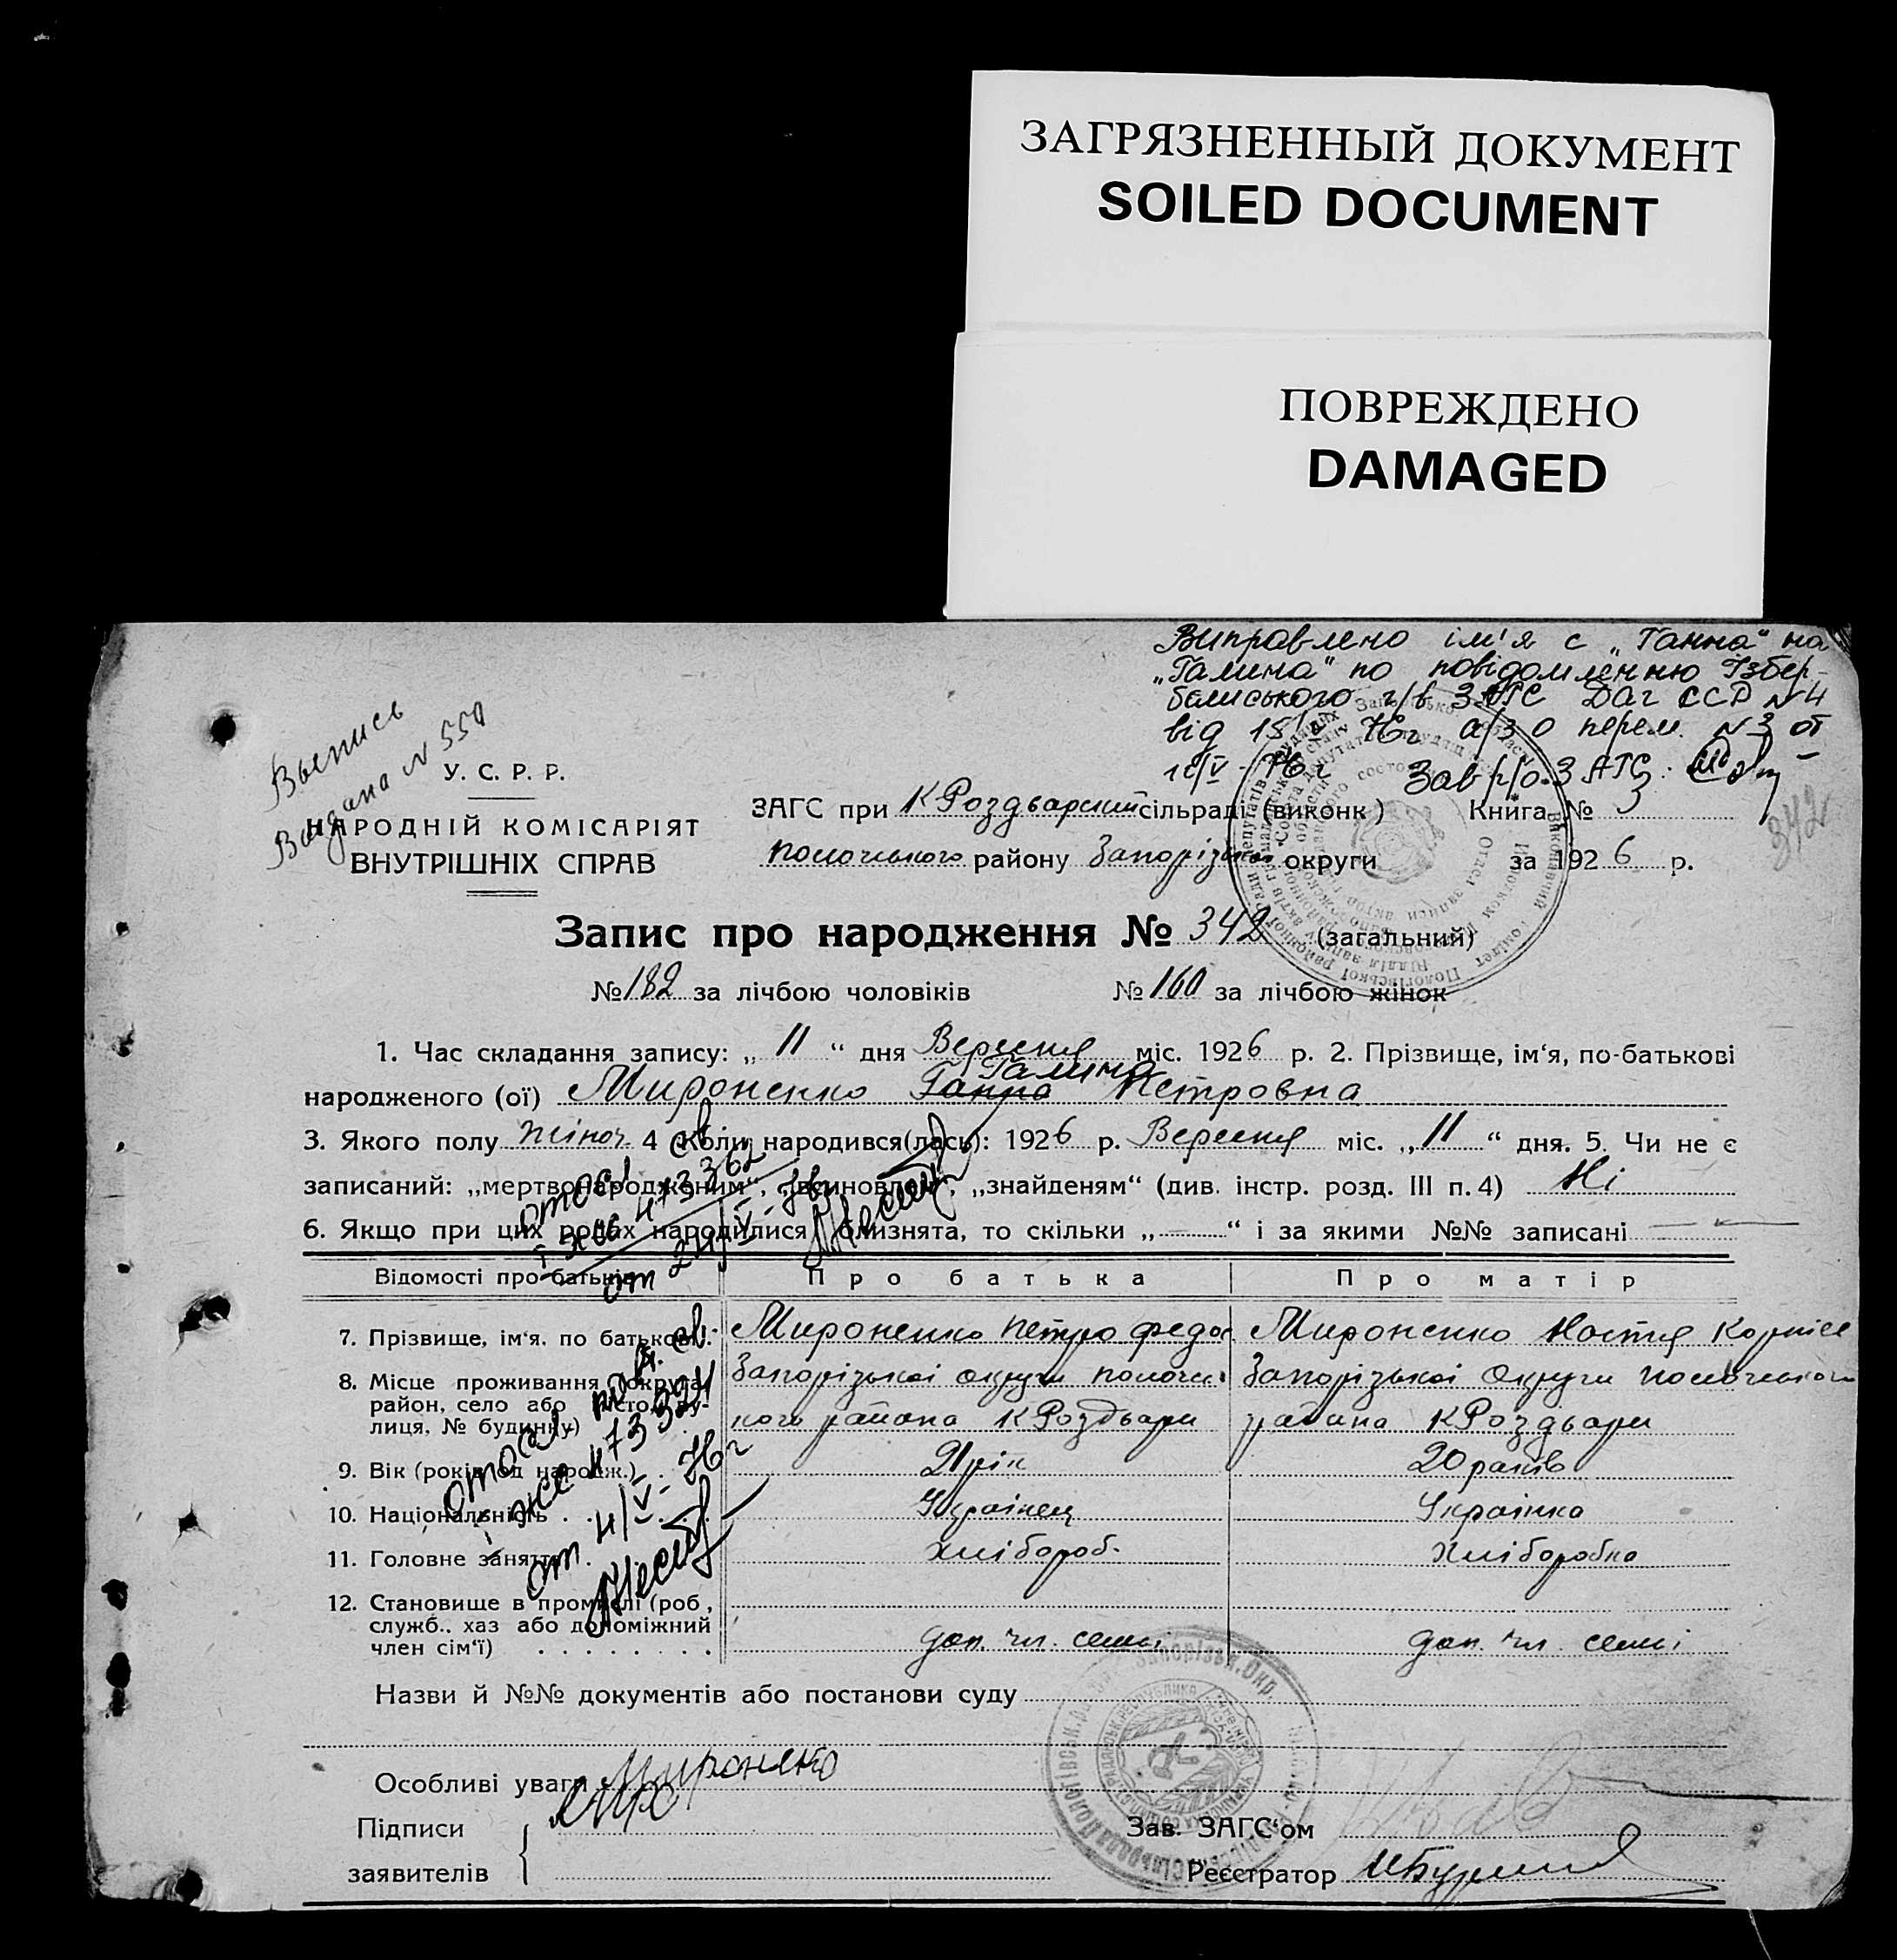 ЗАГРЯЗНЕННЫЙ ДОКУМЕНТ
SOILED DOCUMENT
ПОВРЕЖДЕНО
DAMAGED
Виправлено ім'я с „Ганна" на
„Галина" по повідомленню Ізбер-
башського г/в ЗАГС Даг ССР №4
від 15/V 76г а/з о перем. №3 от
/V - 76 г Зав р/о ЗАГС:
Выпись
Видана № 550
У. С. Р. Р.
НАРОДНІЙ КОМІСАРІЯТ
ВНУТРІШНІХ СПРАВ
ЗАГС при К Роздварский сільраді (виконк ) Книга № 3
Пологського району Запорізької округи за 1926 р.
342
Запис про народження № 342 (загальний)
№ 182 за лічбою чоловіків № 160 за лічбою жінок
1. Час складання запису: „ 11 " дня Вересня міс. 1926 р. 2. Прізвище, ім'я, по-батькові
Галина
народженого (ої) Мироненко Ганна Петровна
3. Якого полу жіноч. 4 Коли народився(лась): 1926 р. Вересня міс. „ 11 " дня. 5. Чи не є
записаний: „мертвонародженим", „всиновлен", „знайденям" (див. інстр. розд. III п. 4) Ні
6. Якщо при цих родах народилися близнята, то скільки „ — " і за якими №№ записані —
от 24/V-76г
Відомості про батьків Про батька Про матір
7. Прізвище, ім'я. по батькові. Мироненко Петро Федос Мироненко Настя Корніев
8. Місце проживання (округа, Запорізької округи Пологсь- Запорізької Округи Пологського
район, село або місто, ву-
лиця, № будинку) кого района К Роздвари района К Роздвари
9. Вік (років од народж.) 21 рік 20 раків
10. Національність Українец Українка
11. Головне заняття Хлібороб. Хліборобка
12. Становище в промислі (роб,
служб., хаз або допоміжний
член сім'ї) доп. чл. семьі доп. чл. семьі
от 4/V-76г
Назви й №№ документів або постанови суду
Особливі уваги Мироненко
Підписи
заявителів
Зав. ЗАГС'ом
Реєстратор